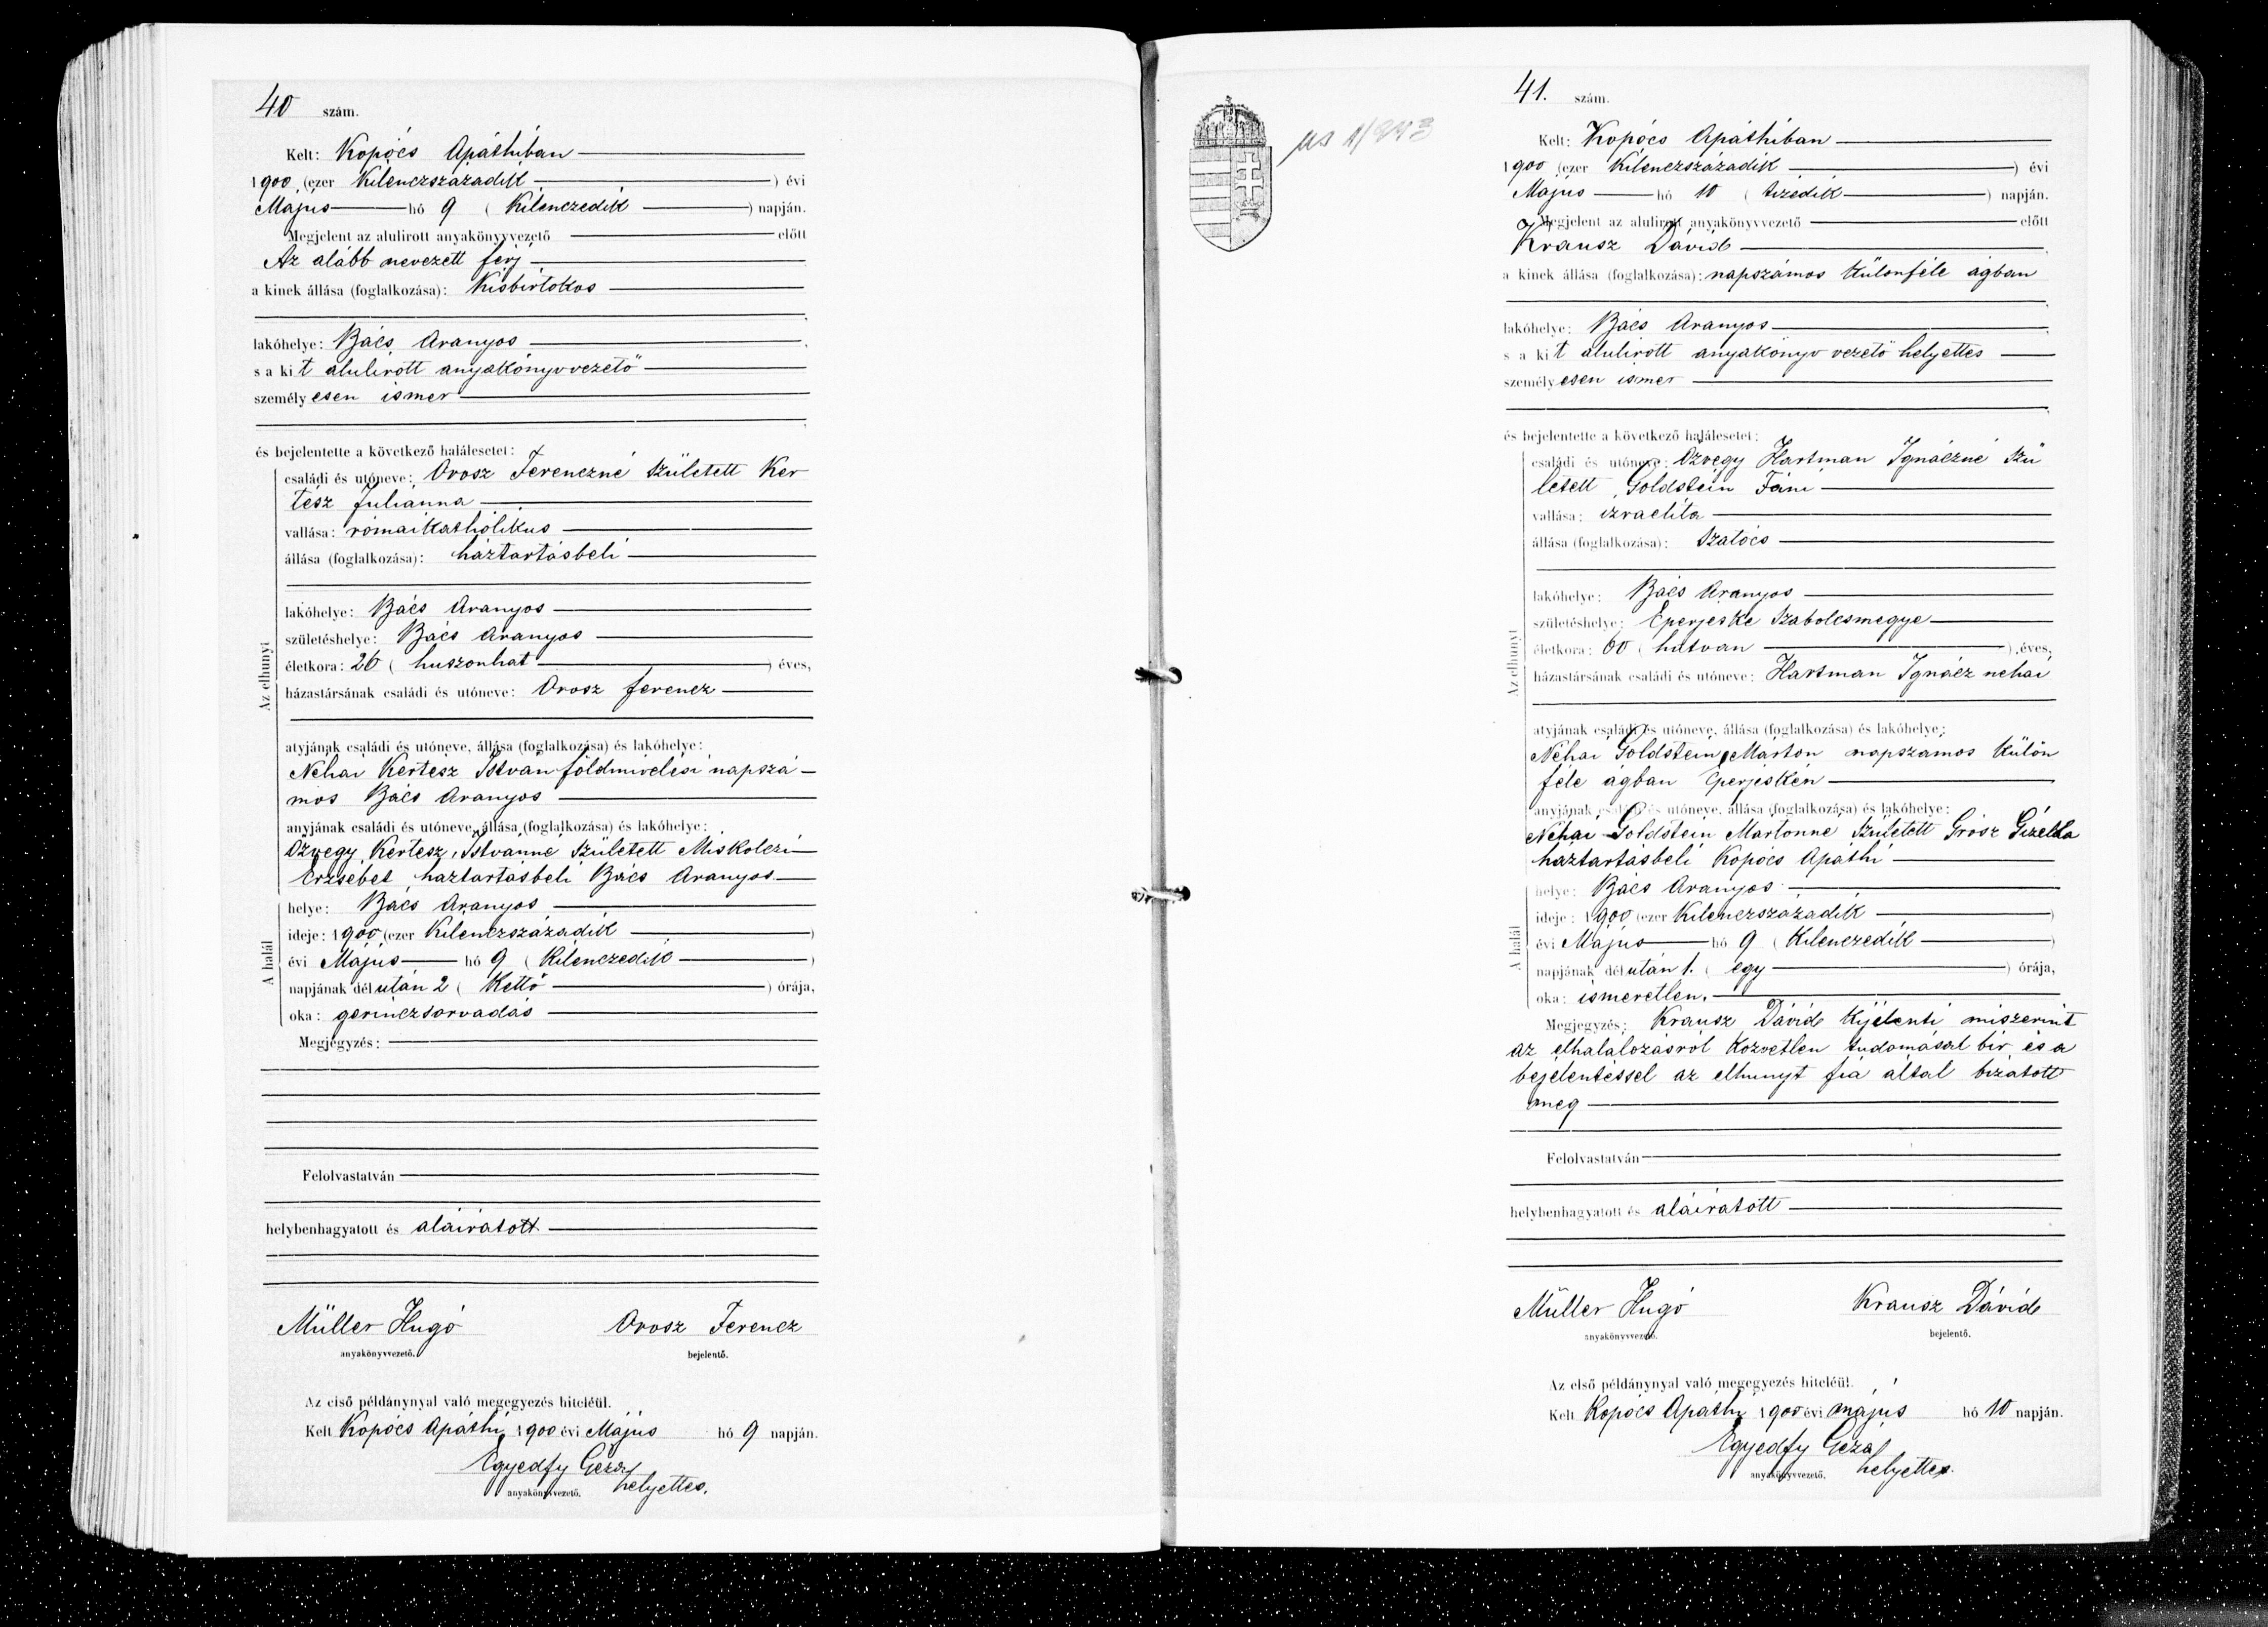 40 szám.
Kelt: Kopócs Apáthiban
1900 (ezer Kilenczszázadik) évi
Május hó 9 (Kilenczedik) napján.
Megjelent az alulirott anyakönyvvezető előtt
Az alább nevezett férj
a kinek állása (foglalkozása): Kisbirtokos
lakóhelye: Bács Aranyos
s a kit alulirott anyakönyvvezető
személyesen ismer
és bejelentette a következő halálesetet:
Az elhunyt
családi és utóneve: Orosz Ferenczné született Ker
tész Julianna
vallása: rómaikatholikus
állása (foglalkozása): háztartásbeli
lakóhelye: Bács Aranyos
születéshelye: Bács Aranyos
életkora: 26 (huszonhat) éves,
házastársának családi és utóneve: Orosz ferencz
atyjának családi és utóneve, állása (foglalkozása) és lakóhelye:
Néhai Kertész István földmivelési napszá-
mos Bács Aranyos
anyjának családi és utóneve, állása (foglalkozása) és lakóhelye:
Özvegy Kertész Istvánné született Miskolczi
Erzsébet háztartásbeli Bács Aranyos
A halál
helye: Bács Aranyos
ideje: 1900 (ezer Kilenczszázadik)
évi Május hó 9 (Kilenczedik)
napjának délután 2 (Kettő) órája,
oka: gerinczsorvadás
Megjegyzés:
Felolvastatván
helybenhagyatott és aláiratott
Müller Hugó Orosz Ferencz
anyakönyvvezető. bejelentő.
Az első példánynyal való megegyezés hiteléül.
Kelt Kopócs Apáthi, 1900 évi Május hó 9 napján.
Egyedfy Géza
helyettes.
anyakönyvvezető.
41. szám.
Kelt: Kopócs Apáthiban
1900 (ezer Kilenczszázadik) évi
Május hó 10 (tizedik) napján.
Megjelent az alulirott anyakönyvvezető előtt
Krausz Dávid
a kinek állása (foglalkozása): napszámos Különféle ágban
lakóhelye: Bács Aranyos
s a kit alulirott anyakönyv vezető helyettes
személyesen ismer
és bejelentette a következő halálesetet:
Az elhunyt
családi és utóneve: Özvegy Hartman Ignáczné szü
letett Goldstein Fáni
vallása: izraelita
állása (foglalkozása): szatócs
lakóhelye: Bács Aranyos
születéshelye: Eperjeske Szabolcsmegye
életkora: 60 (hatvan) éves,
házastársának családi és utóneve: Hartman Ignácz nehai
atyjának családi és utóneve, állása (foglalkozása) és lakóhelye:
Néhai Goldstein Márton napszámos Külön
féle ágban Eperjeskén
anyjának családi és utóneve, állása (foglalkozása) és lakóhelye:
Néhai Goldstein Mártonné született Grósz Gizella
háztartásbeli Kopócs Apáthi
A halál
helye: Bács Aranyos
ideje: 1900 (ezer Kilenczszázadik)
évi Május hó 9 (Kilenczedik)
napjának délután 1. (egy) órája,
oka: ismeretlen.
Megjegyzés: Krausz Dávid Kijelenti miszerint
az elhalálozásról közvetlen tudomásal bir és a
bejelentéssel az elhunyt fia által bizatott
meg
Felolvastatván
helybenhagyatott és aláiratott
Müller Hugó Krausz Dávid
anyakönyvvezető. bejelentő.
Az első példánynyal való megegyezés hiteléül.
Kelt Kopócs Apáthi 1900 évi május hó 10 napján.
Egyedfy Géza
helyettes.
anyakönyvvezető.